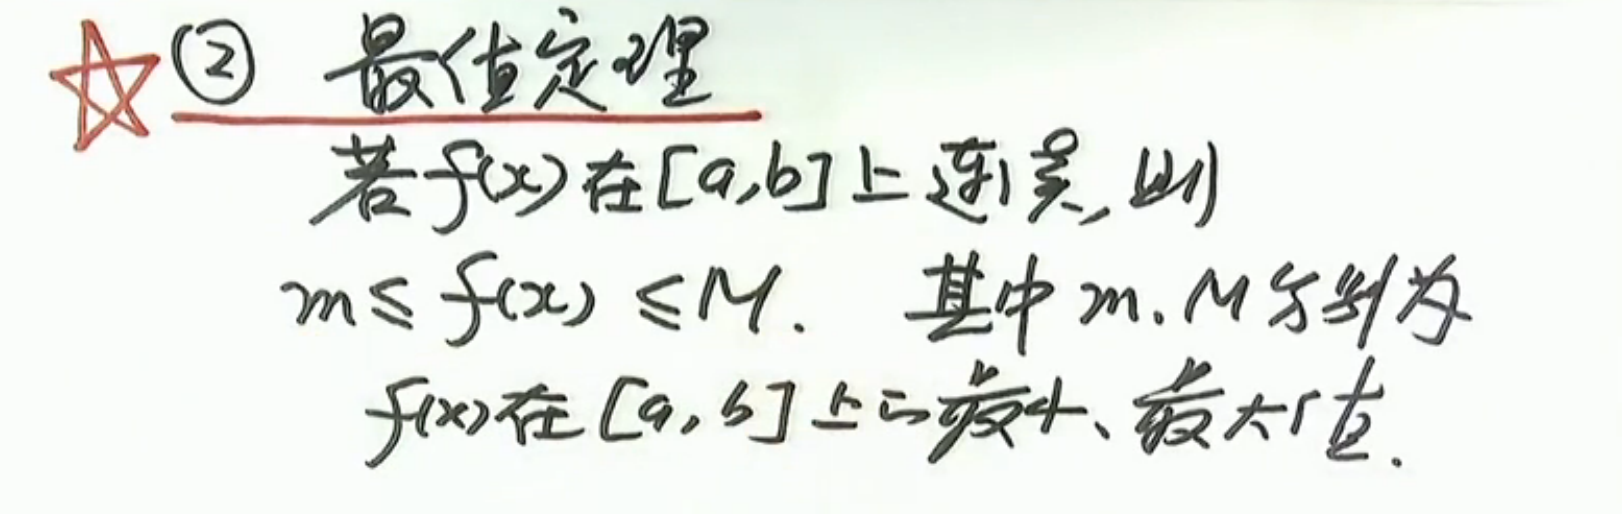 ② 最值定理
若f(x)在[a,b]上连续,则
m≤f(x)≤M. 其中m.M分别为
f(x)在[a,b]上的最小、最大值.